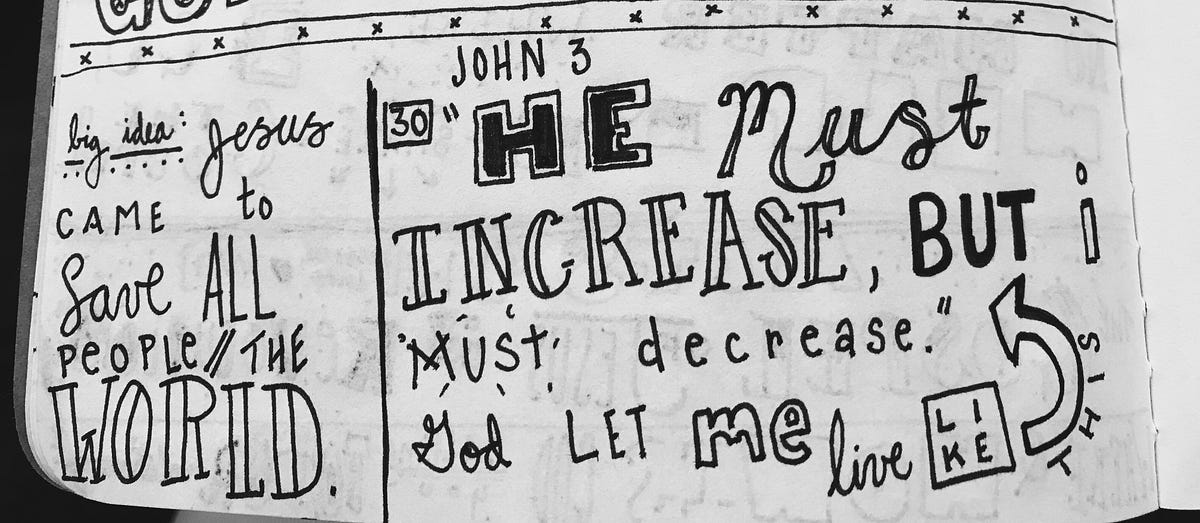 big idea: Jesus
CAME to
Save ALL
PEOPLE // THE
WORLD.
JOHN 3
30 "HE Must
INCREASE, BUT i
MUST decrease."
God LET me live LIKE
THIS